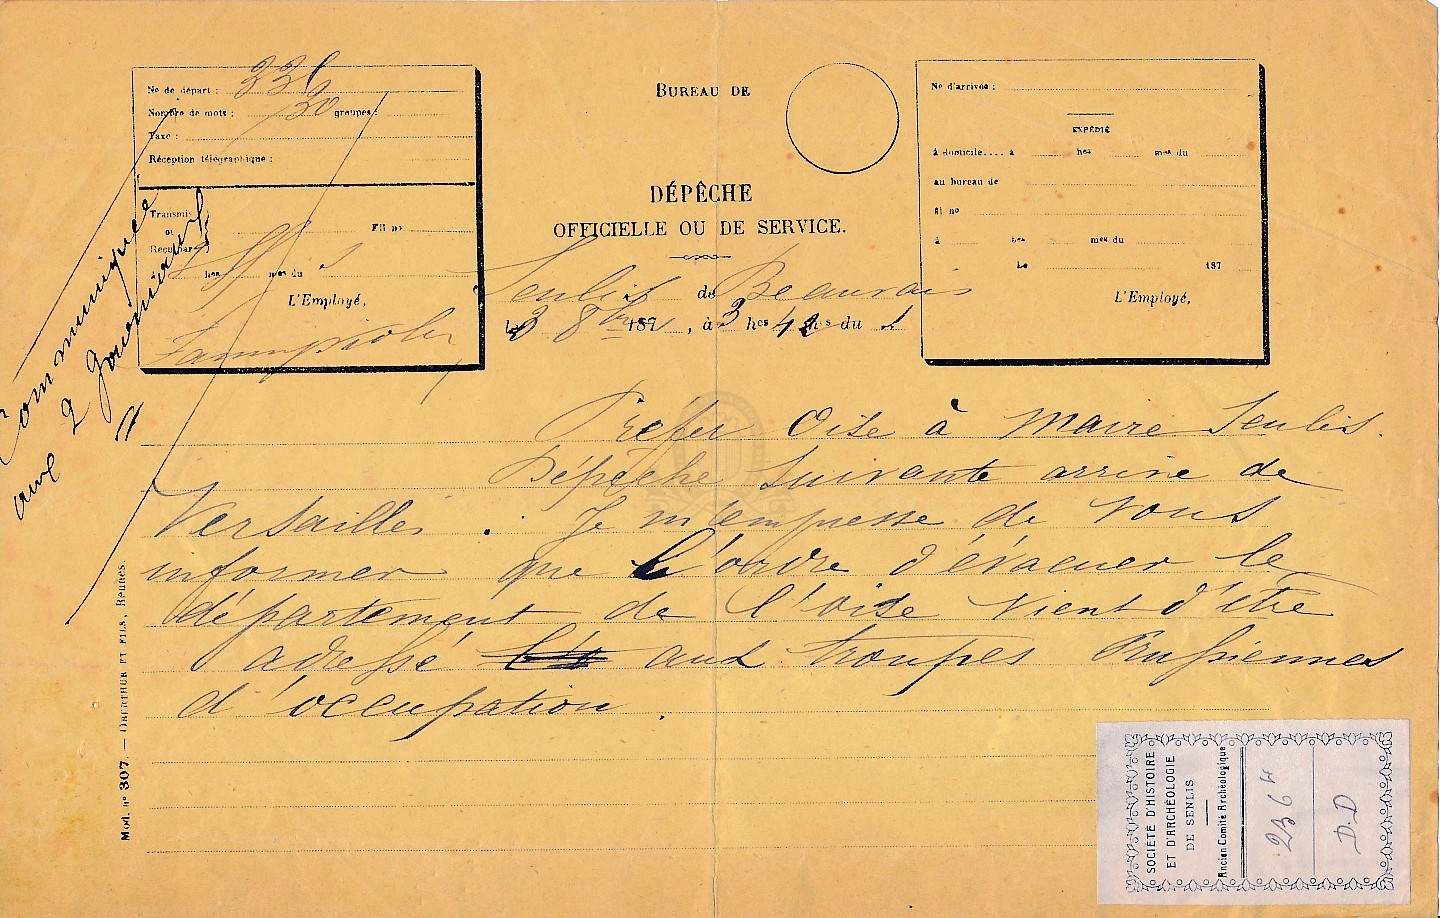 No de départ : 336
Nombre de mots : 30 groupes :
Taxe :
Réception télégraphique :
Transmis
ou
Reçu par
à hes mes du
Fil no
L'Employé,
BUREAU DE
DÉPÊCHE
OFFICIELLE OU DE SERVICE.
Senlis de Beauvais
Le 3 8bre 1871, à 3 hes 42 mes du s
No d'arrivée :
EXPÉDIÉ
à domicile.... à hes mes du
au bureau de
fil no
à hes mes du
Le 187
L'Employé,
Communiqué
aux 2 journaux
Préfet Oise à Maire Senlis.
Dépêche suivante arrive de
Versailles. Je m'empresse de vous
informer que l'ordre d'évacuer le
département de l'oise vient d'être
adressé aux troupes Prussiennes
d'occupation.
Mod. no 307. — OBERTHUR ET FILS, Rennes.
SOCIÉTÉ D'HISTOIRE
ET D'ARCHÉOLOGIE
DE SENLIS
Ancien Comité Archéologique
236
D.D